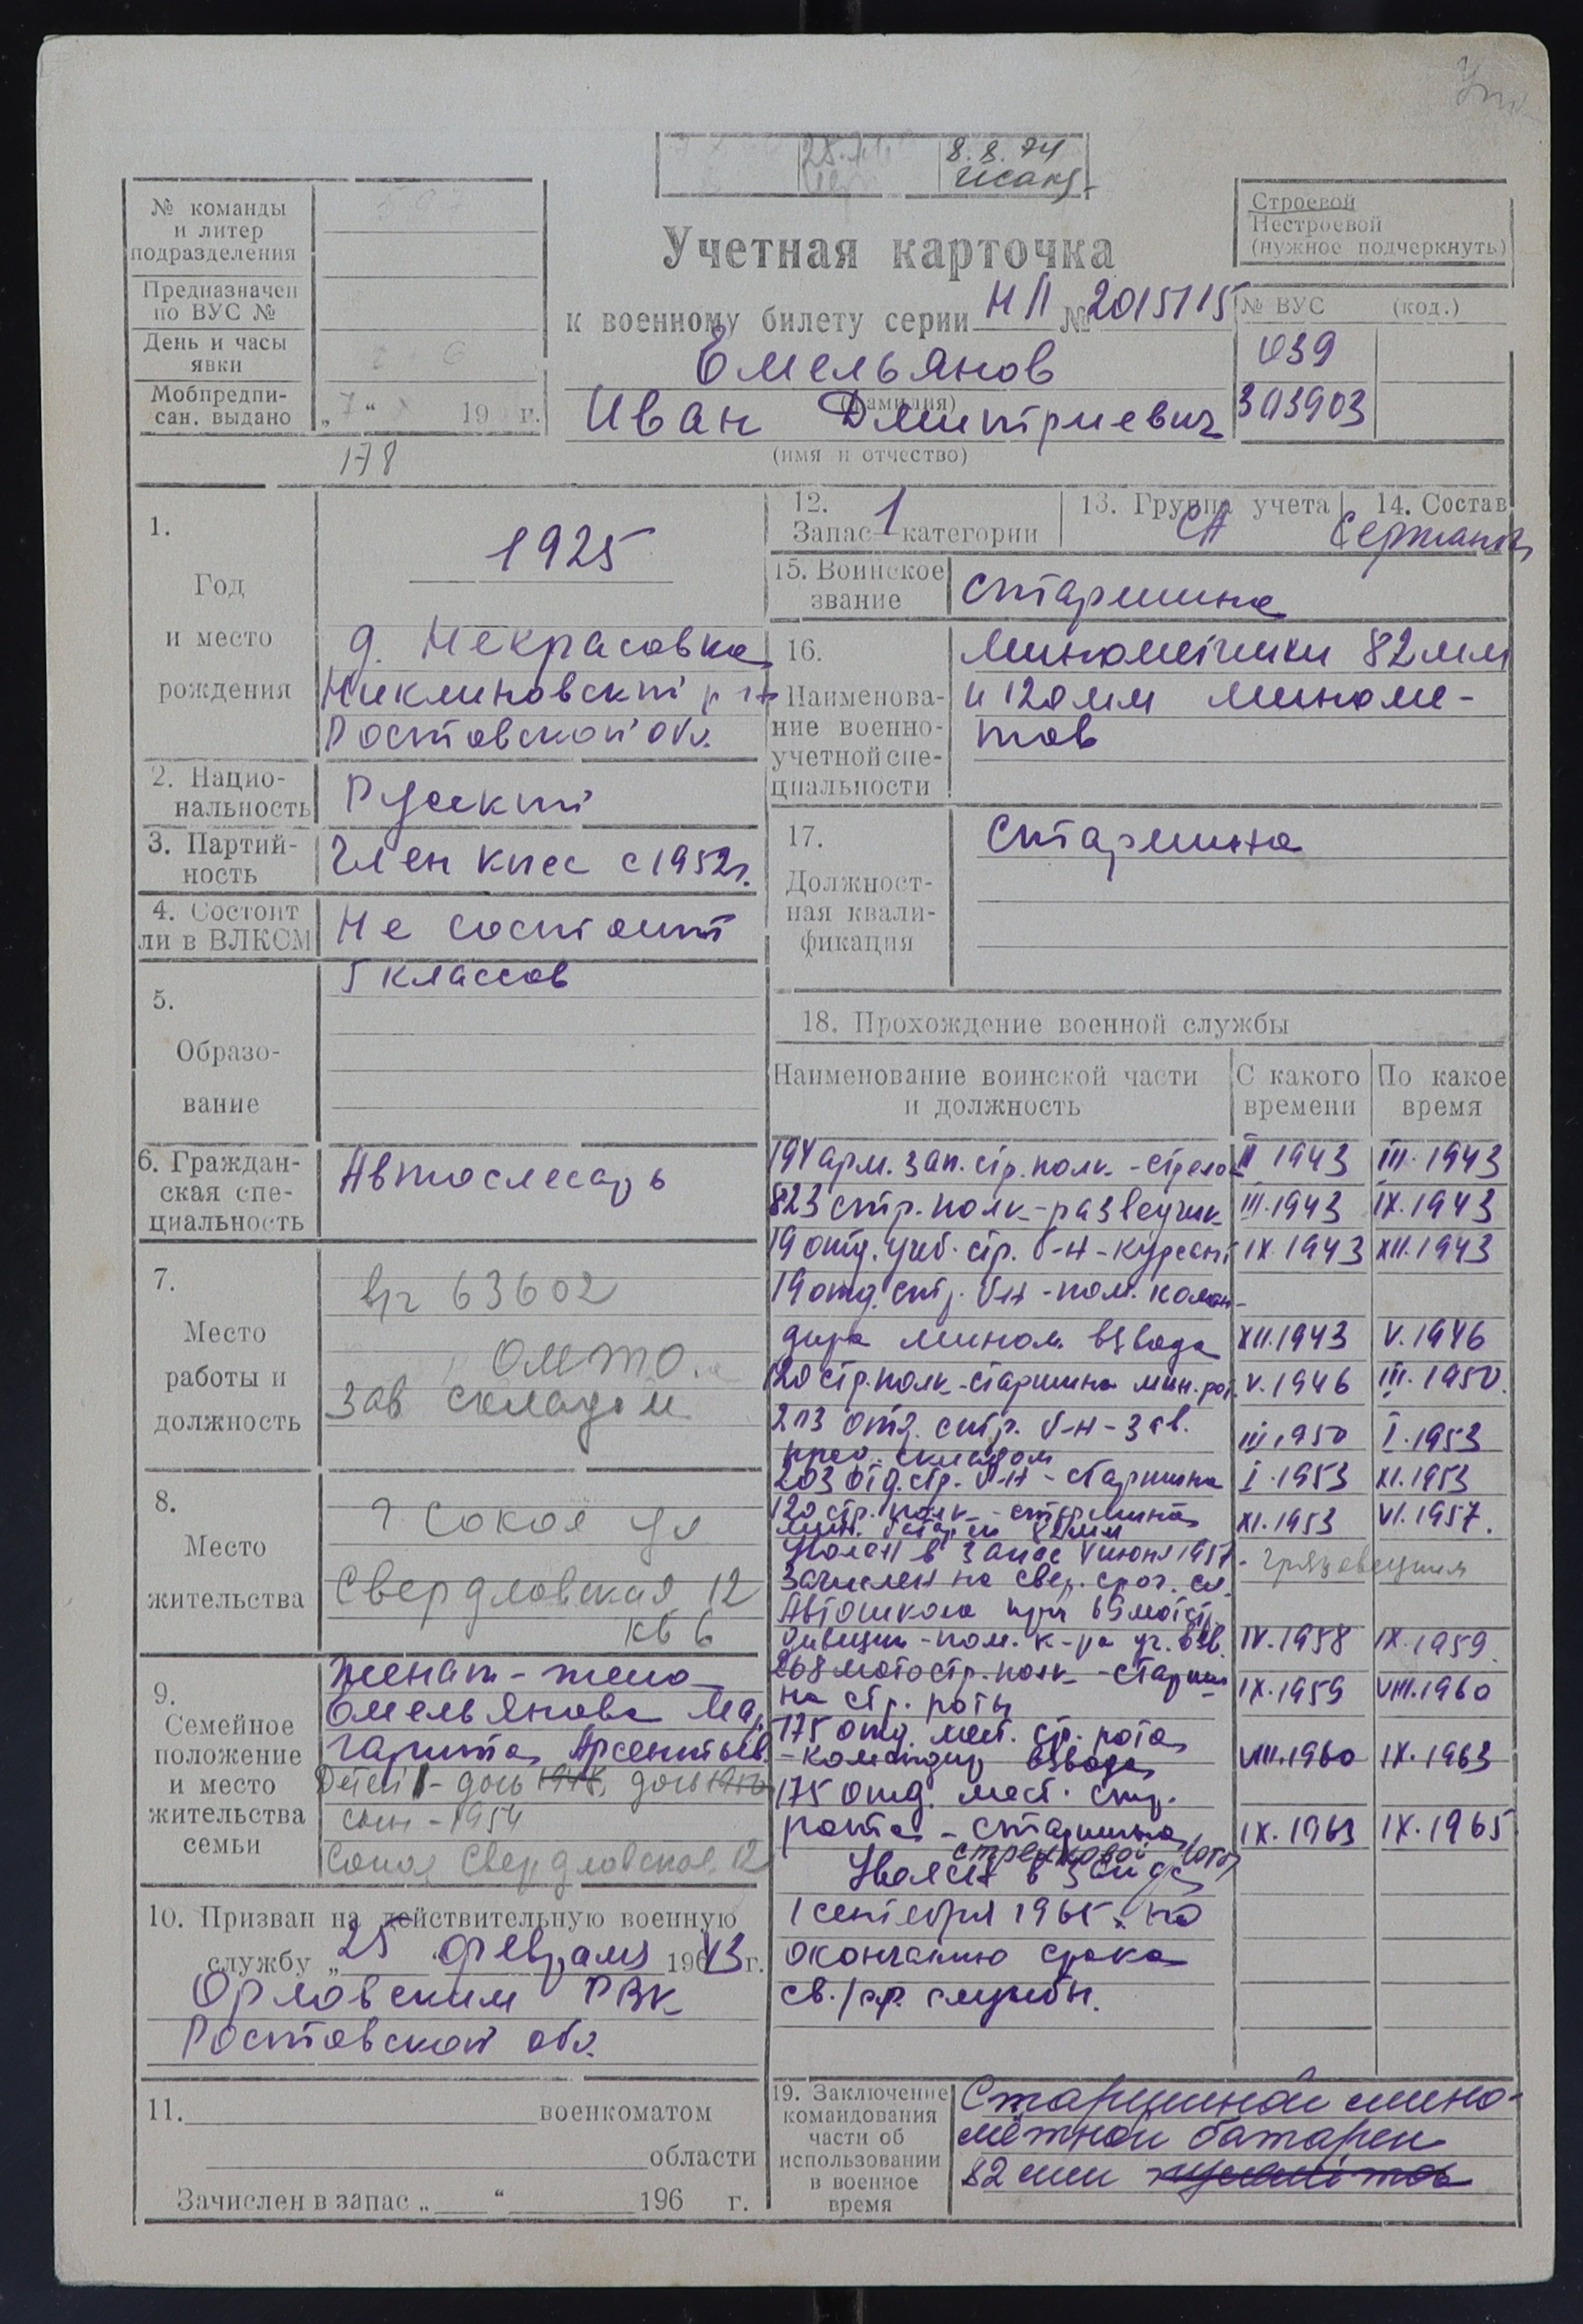 8.8.74
№ команды
и литер
подразделения
Предназначен
по ВУС №
День и часы
явки
Мобпредпи-
сан. выдано
„ “ 19 г.
178
Учетная карточка
к военному билету серии НП № 2015115
Емельянов
(фамилия)
Иван Дмитриевич
(имя и отчество)
Строевой
Нестроевой
(нужное подчеркнуть)
№ ВУС (код.)
039
303903
1.
Год
и место
рождения
1925
д. Некрасовка
Ростовской обл.
2. Нацио-
нальность
Русский
3. Партий-
ность
Член кпсс с 1952г.
4. Состоит
ли в ВЛКСМ
Не состоит
5.
Образо-
вание
5 классов
6. Граждан-
ская спе-
циальность
Автослесарь
7.
Место
работы и
должность
в/ч 63602
ОМТО
Зав складом
8.
Место
жительства
г Сокол ул
Свердловская 12
кв 6
9.
Семейное
положение
и место
жительства
семьи
Женат - жена
Емельянова Мар
гарита Арсентьев.
Детей 1 - дочь 1948, дочь
сын - 1954
Сокол Свердловская 12
10. Призван на действительную военную
службу „25 февраля 1943 г.
Орловским РВК
Ростовской обл.
11. военкоматом
области
Зачислен в запас „ “ 196 г.
12.
Запас 1 категории
13. Группа учета
СА
14. Состав
Сержанты
15. Воинское
звание
Старшина
16.
Наименова-
ние военно-
учетной спе-
циальности
Минометчики 82 мм
и 120 мм миноме-
тов
17.
Должност-
ная квали-
фикация
Старшина
18. Прохождение военной службы
Наименование воинской части
и должность
С какого
времени
По какое
время
194 арм. зап. стр. полк - стрелок II 1943 III. 1943
823 стр. полк - разведчик III. 1943 IX. 1943
19 отд. учеб. стр. б-н - курсант IX. 1943 XII. 1943
19 отд. стр. б-н - пом. коман-
дира мином. взвода XII. 1943 V. 1946
120 стр. полк - старшина мин. рот. V. 1946 III. 1950.
203 отд. стр. б-н - зав.
прод. складом III 1950 I. 1953
203 отд. стр. б-н - старшина I. 1953 XI. 1953
120 стр. полк - старшина
мин. батареи 82 мм XI. 1953 VI. 1957.
Уволен в запас июня 1957
Зачислен на свер. сроч. сл. Грязовецким
Автошкола при 69 мотстр.
дивизии - пом. к-ра уч. взв. IV. 1958 IX. 1959.
268 мотостр. полк - старши-
на стр. роты IX. 1959 VIII. 1960
175 отд. мест. стр. рота
- командир взвода VIII. 1960 IX. 1963
175 отд. мест. стр.
рота - старшина IX. 1963 IX. 1965
стрелковой роты
Уволен в запас
1 сентября 1965г. по
окончанию срока
св./ср. службы.
19. Заключение
командования
части об
использовании
в военное
время
Старшиной мино-
мётной батареи
82 мм